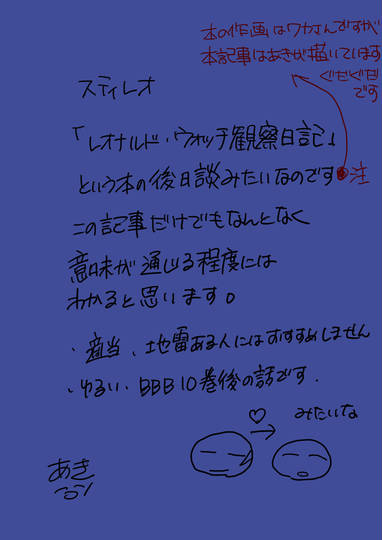 本の作画はワカさんですが
本記事はあきが描いています
ぐだぐだ
です
スティレオ
「レオナルド・ウォッチ観察日記」
という本の後日談みたいなのです
注
この記事だけでもなんとなく
意味が通じる程度には
わかると思います。
・適当、地雷ある人にはおすすめしません
・ゆるい、BBB10巻後の話です.
みたいな
あき